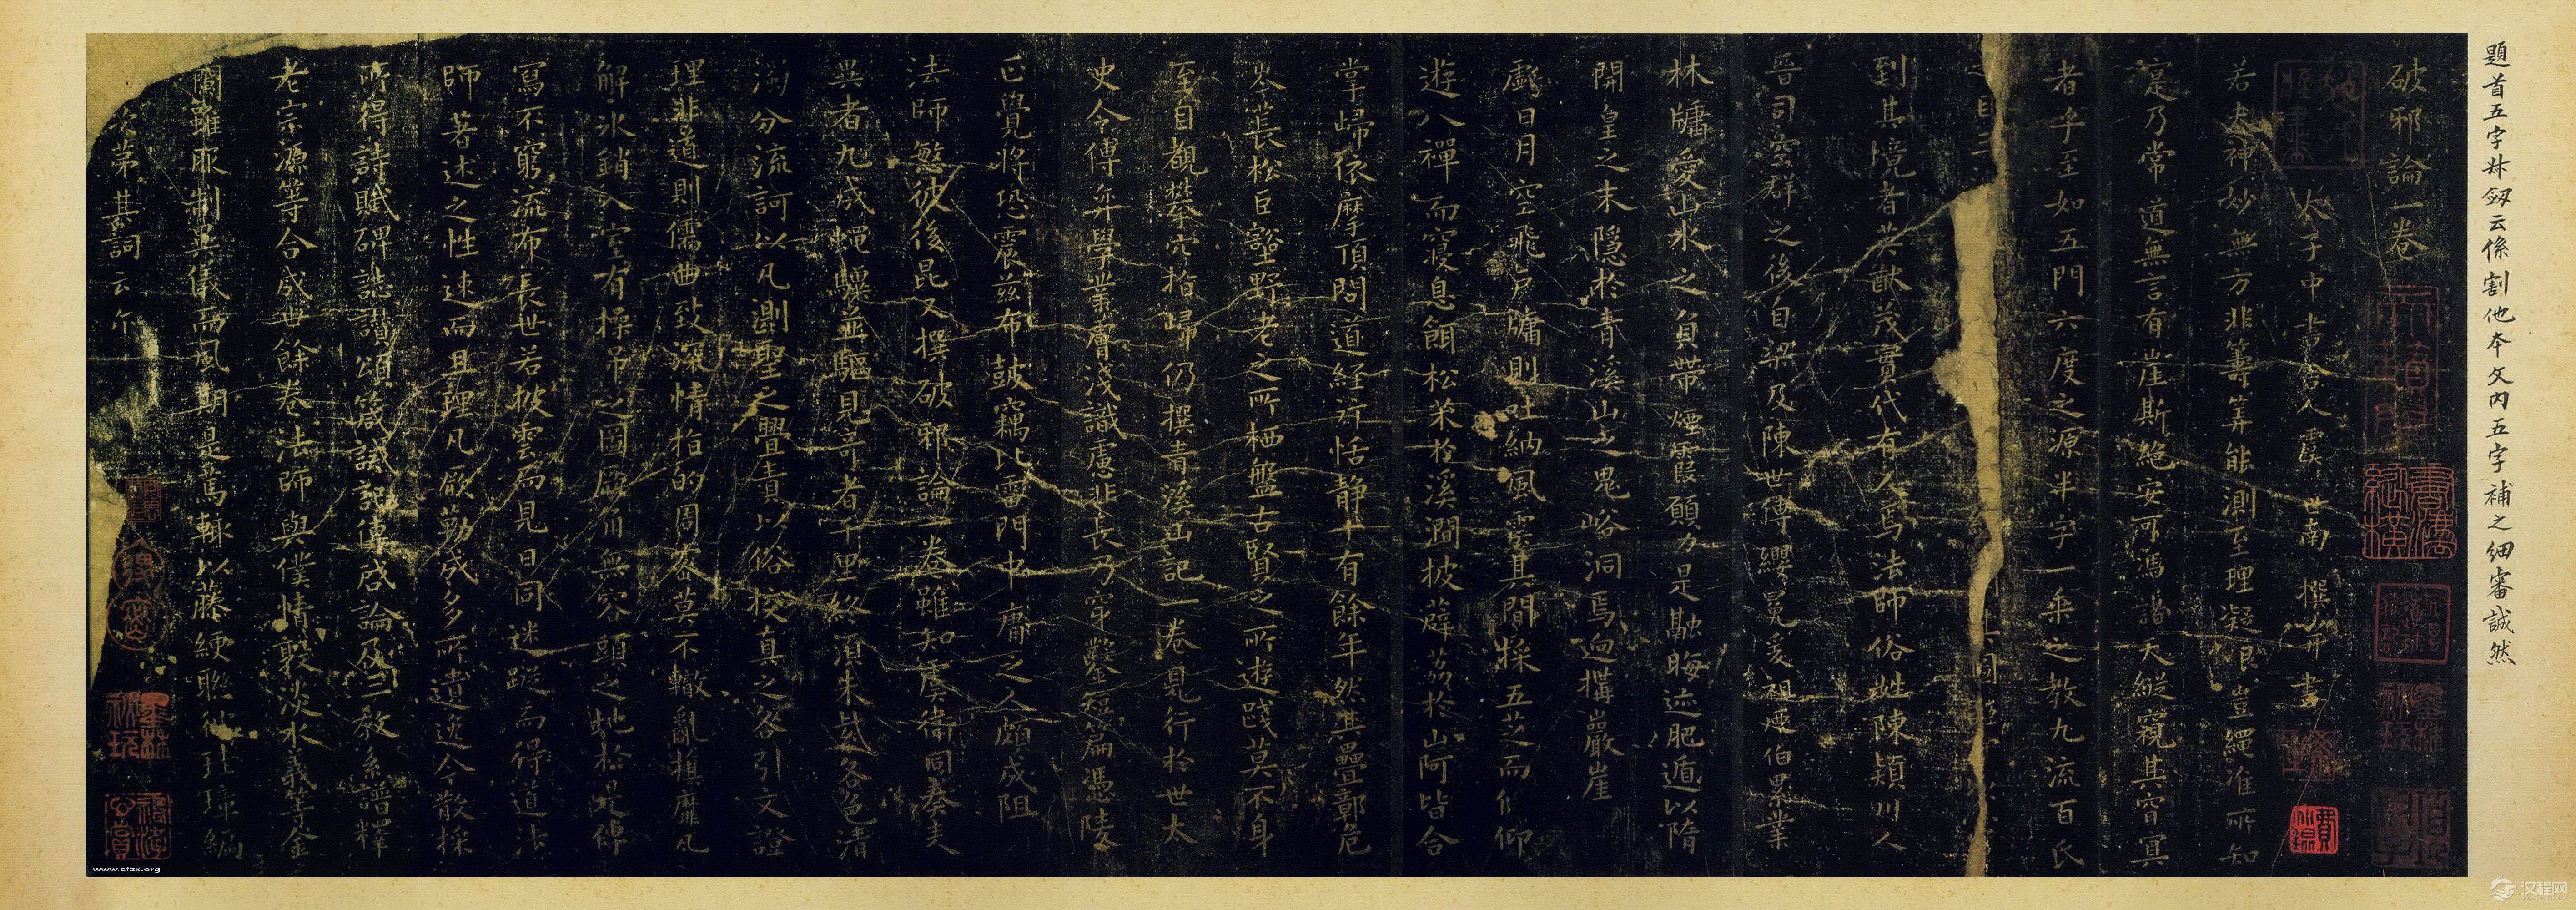 題首五字叔蒭云係割他本文内五字補之細審誠然
破邪論一卷
太子中書舍人虞世南撰并書
若夫神妙無方非籌筭能測至理凝邈豈繩准所知
寔乃常道無言有崖斯絶安可憑諸天縱窺其窅冥
者乎至如五門六度之源半字一乘之教九流百氏
之目三
到其境者英猷茂實代有人焉法師俗姓陳潁川人
晉司空群之後自梁及陳世傳纓冕爰祖煙伯累業
林牖愛山水之負帶煙霞願力是融晦迹肥遁以隋
開皇之末隱於青溪山之鬼峪洞焉迥搆巖崖
虧日月空飛戶牖則吐納風雲其間採五芝而偃仰
遊八禪而寢息餌松朮於溪澗披薜荔於山阿皆合
掌歸依摩頂問道經行恬静十有餘年然其疊鄣危
岑長松巨壑野老之所栖盤古賢之所遊踐莫不身
至目覩攀穴指歸仍撰青溪山記一卷見行於世太
史令傅弈學業膚淺識慮非長乃穿鑿短篇憑陵
正覺將恐震茲布鼓竊比雷門中庸之人頗成阻
法師愍彼後昆又撰破邪論一卷雖知虞衛同奏表
異者九成蠅驥並驅見奇者千里終須朱紫各色清
濁分流訶以凡測聖之舋責以俗校真之咎引文證
理非道則儒曲致深情指的周密莫不轍亂旗靡凡
解冰銷入室有操吊之圖厥角無容頭之地於是傳
寫不窮流布長世若披雲而見日同迷蹤而得道法
師著述之性速而且理凡厥勒成多所遺逸今散採
所得詩賦碑誌讚頌箴誡記傳啓論及三教系譜釋
老宗源等合成世餘卷法師與僕情敦淡水義等金
蘭雖服制異儀而風期是篤輒以藤綆聯彼珪璋編
次第其詞云尒
書溇縱橫
費
www.sfzx.org
汉程网